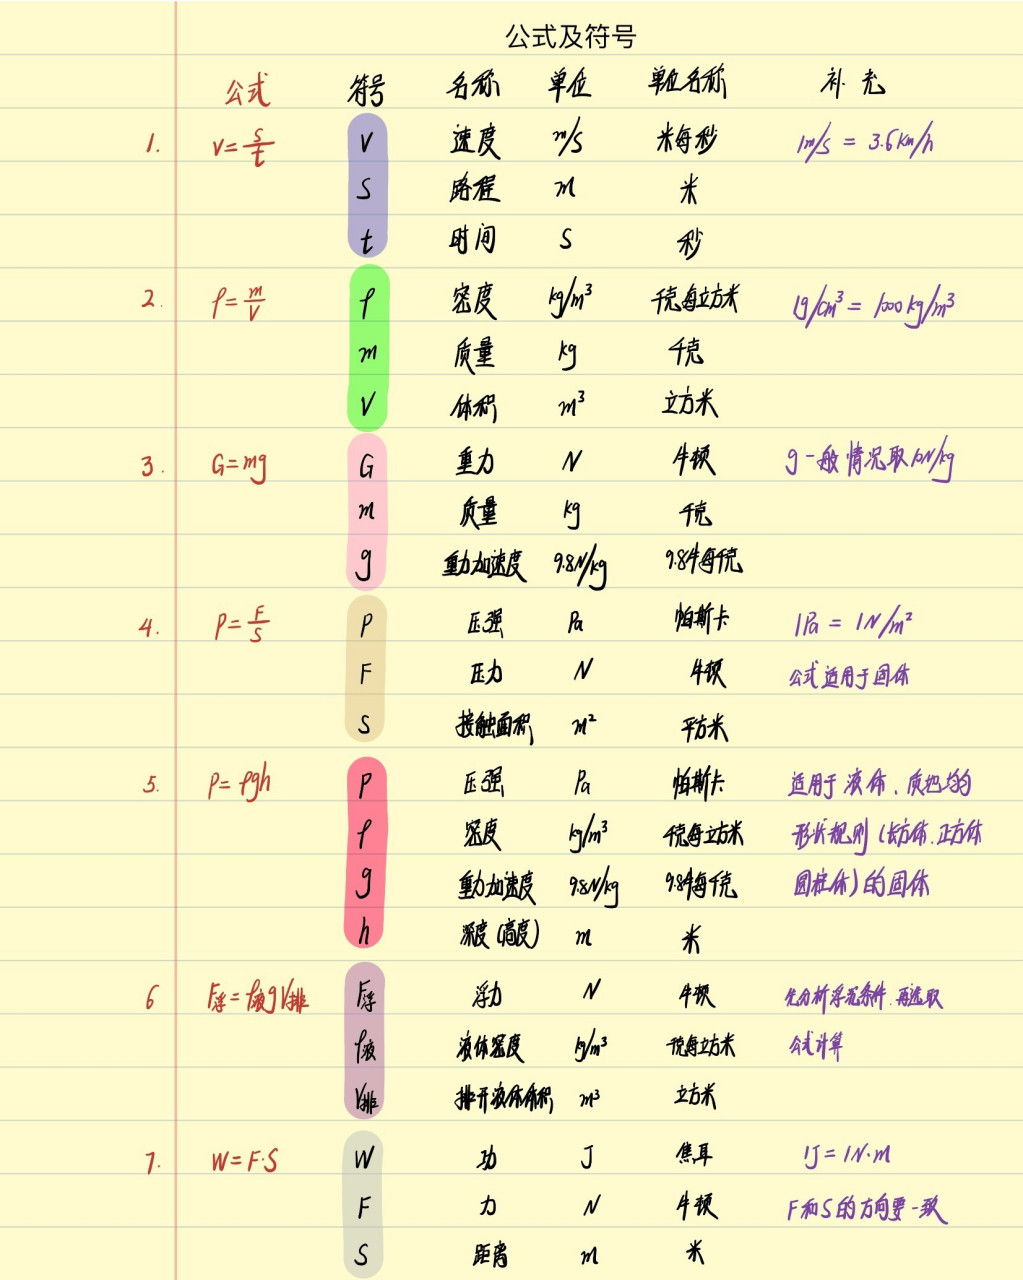 公式及符号
公式 符号 名称 单位 单位名称 补充
1. v=s/t V 速度 m/s 米每秒 1m/s = 3.6km/h
S 路程 m 米
t 时间 s 秒
2. ρ=m/V ρ 密度 kg/m³ 千克每立方米 1g/cm³ = 1000kg/m³
m 质量 kg 千克
V 体积 m³ 立方米
3. G=mg G 重力 N 牛顿 g一般情况取10N/kg
m 质量 kg 千克
g 重力加速度 9.8N/kg 9.8牛每千克
4. P=F/S P 压强 Pa 帕斯卡 1Pa = 1N/m²
F 压力 N 牛顿 公式适用于固体
S 接触面积 m² 平方米
5. P=ρgh P 压强 Pa 帕斯卡 适用于液体、质地均匀
ρ 密度 kg/m³ 千克每立方米 形状规则(长方体.正方体
g 重力加速度 9.8N/kg 9.8牛每千克 圆柱体)的固体
h 深度(高度) m 米
6 F浮=ρ液gV排 F浮 浮力 N 牛顿 先分析浮沉条件.再选取
ρ液 液体密度 kg/m³ 千克每立方米 公式计算
V排 排开液体体积 m³ 立方米
7. W=F·S W 功 J 焦耳 1J=1N·m
F 力 N 牛顿 F和S的方向要一致
S 距离 m 米